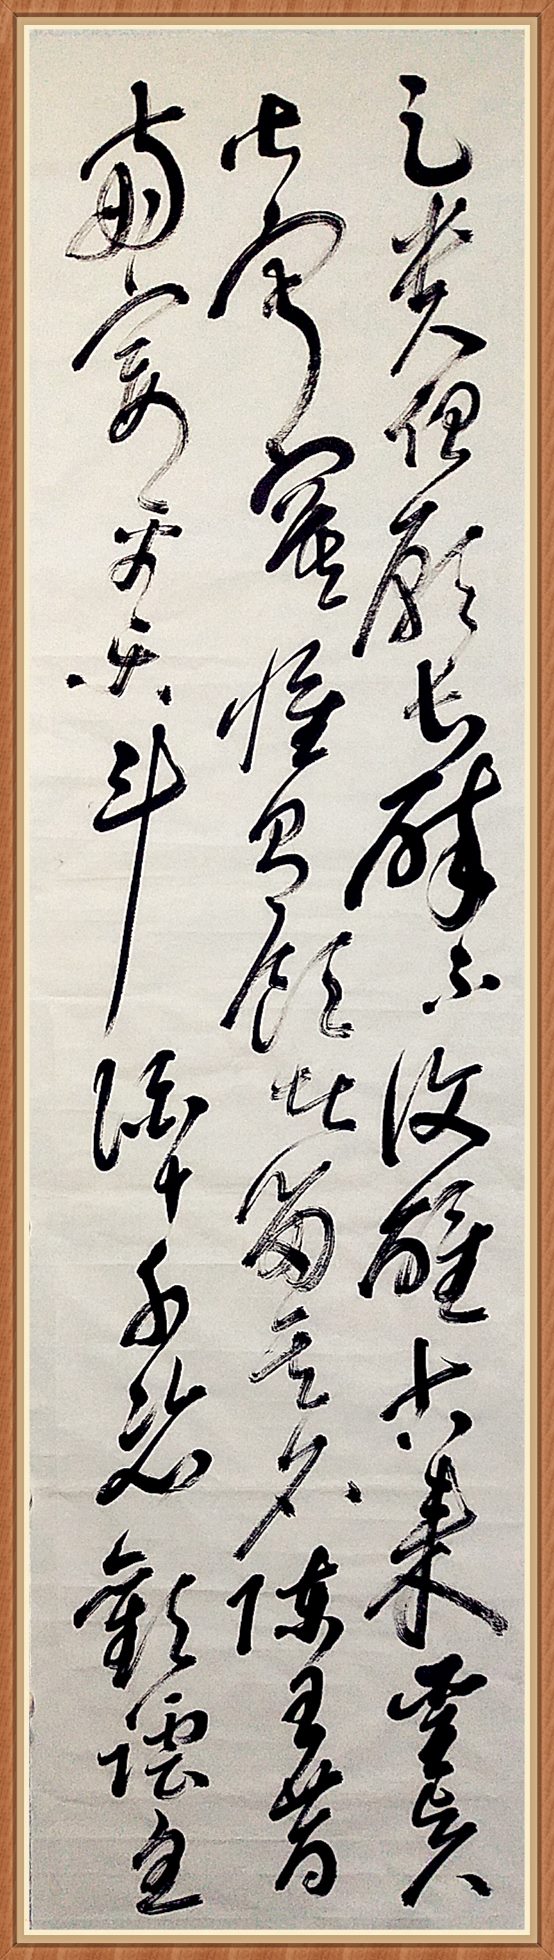 足貴但願長醉不復醒古來聖賢
皆寂寞惟有飲者留其名陳王昔
時宴平樂斗酒十千恣歡謔主